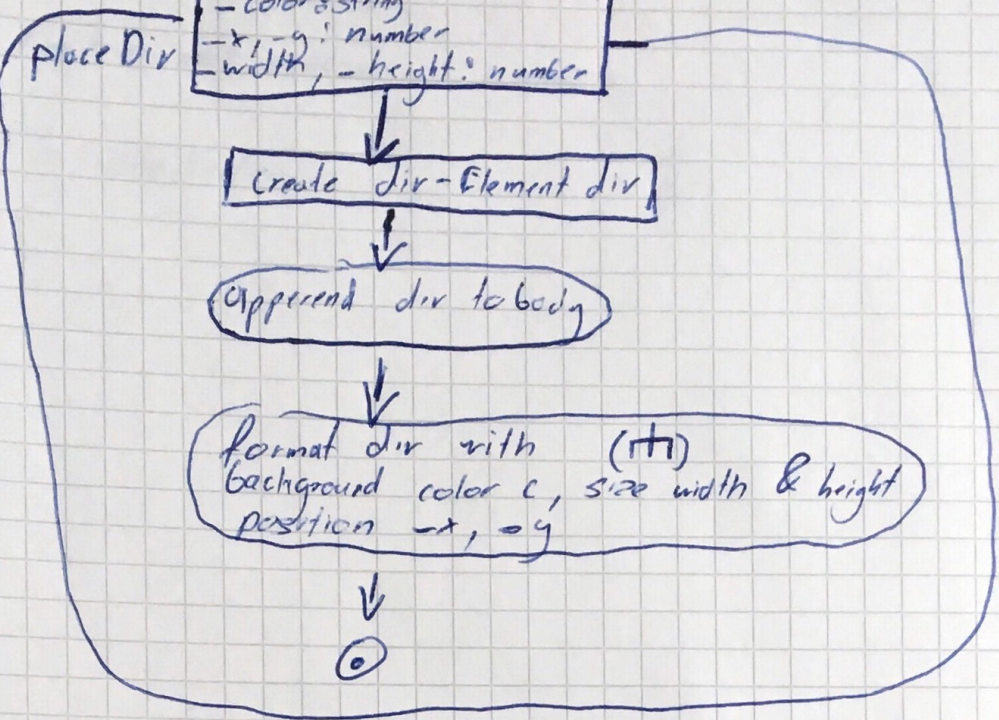 - color: string
placeDiv
-x, -y: number
-width, -height: number
Create div-Element div
apperend div to body
format div with (rh)
background color c, size width & height
position -x, -y